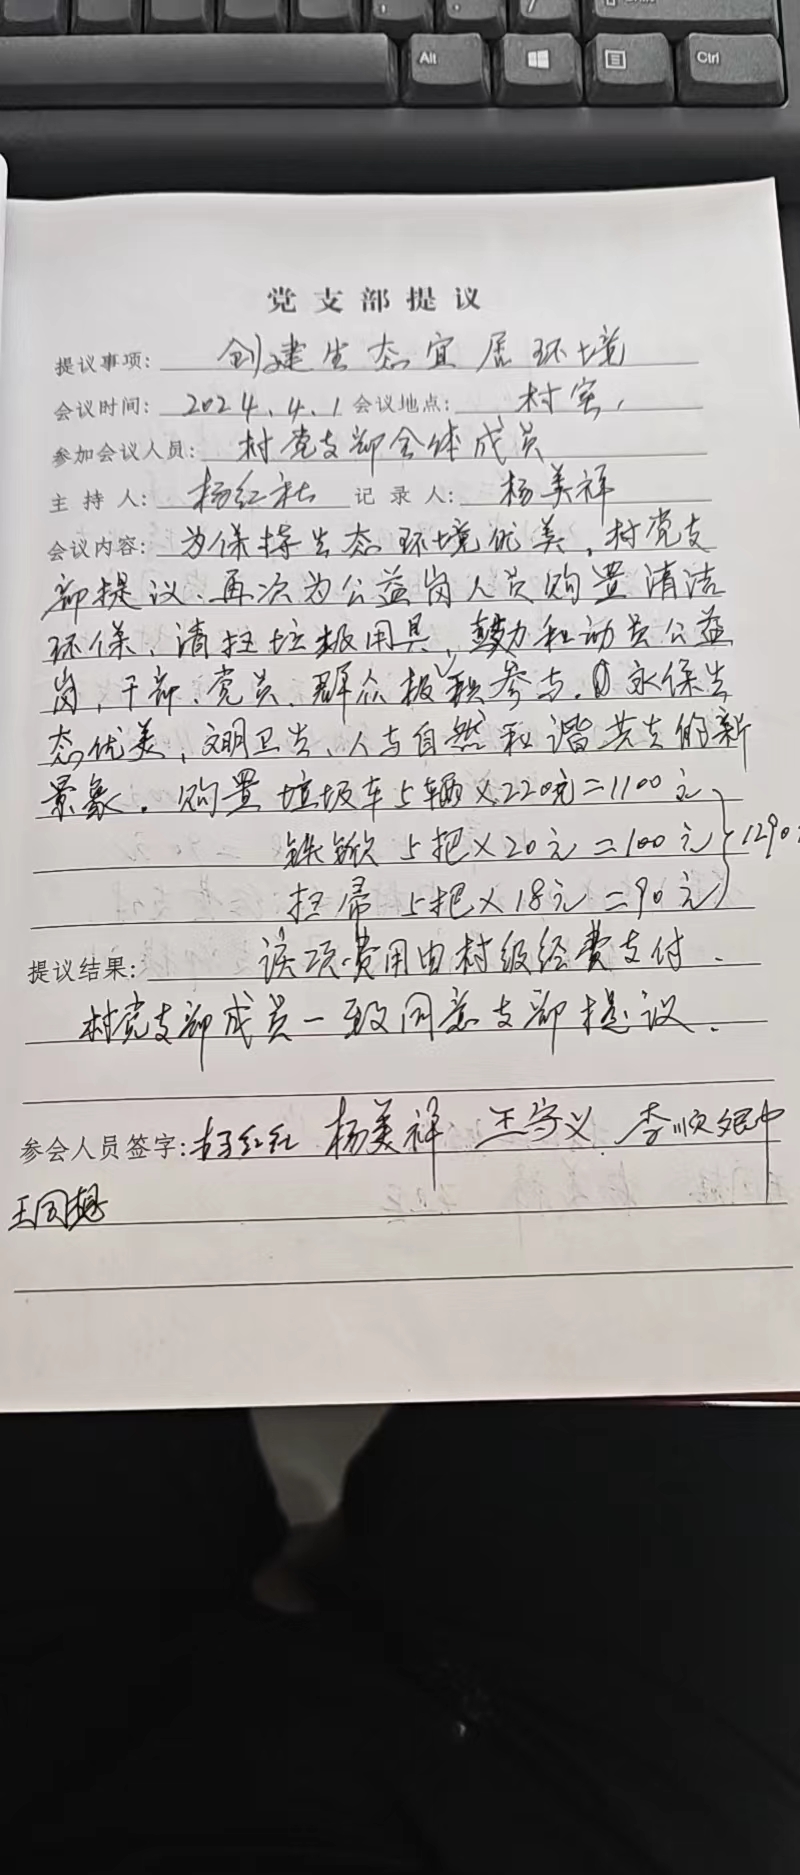 Alt
Ctrl
党支部提议
提议事项: 创建生态宜居环境
会议时间: 2024.4.1 会议地点: 村室
参加会议人员: 村党支部全体成员
主持人: 杨红社 记录人: 杨美祥
会议内容: 为保持生态环境优美，村党支
部提议、再次为公益岗人员购置清洁
环保、清扫垃圾用具，鼓励和动员公益
岗，干部、党员、群众积极参与。永保生
态优美，文明卫生、人与自然和谐共生的新
景象。购置垃圾车5辆×220元=1100元
铁锨5把×20元=100元 1290
扫帚5把×18元=90元
提议结果: 该项费用由村级经费支付.
村党支部成员一致同意支部提议.
参会人员签字: 杨红社 杨美祥 王守义 李顺
王国